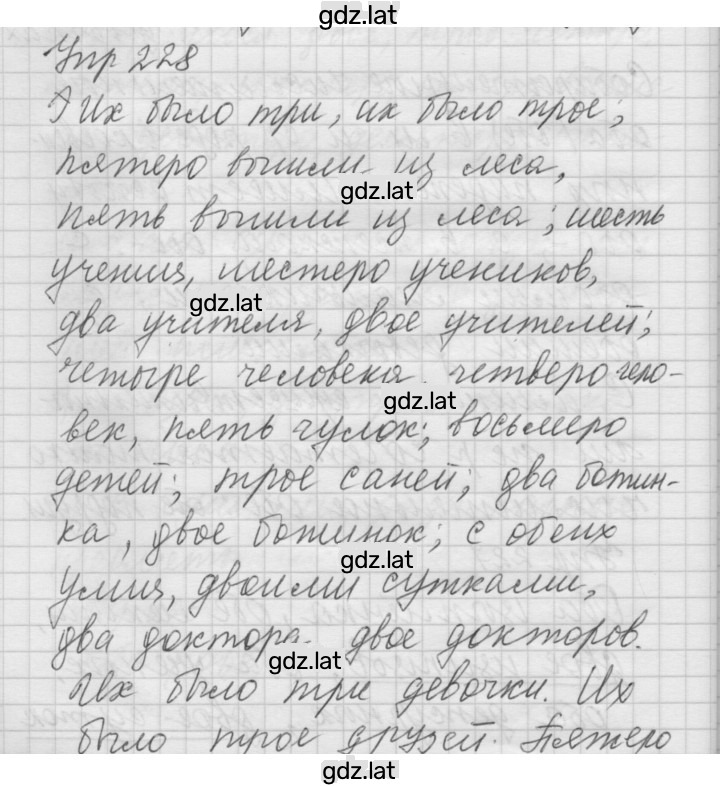 gdz.lat
Упр 228
Их было три, их было трое;
пятеро вышли из леса,
gdz.lat
пять вышли из леса; шесть
учениц, шестеро учеников,
gdz.lat
два учителя, двое учителей;
четыре человека четверо чело-
gdz.lat
век, пять чулок; восьмеро
детей; трое саней; два ботин-
ка, двое ботинок; с обеих
gdz.lat
улиц, двоими сутками,
два доктора двое докторов.
gdz.lat
Их было три девочки. Их
было трое друзей. Пятеро
gdz.lat